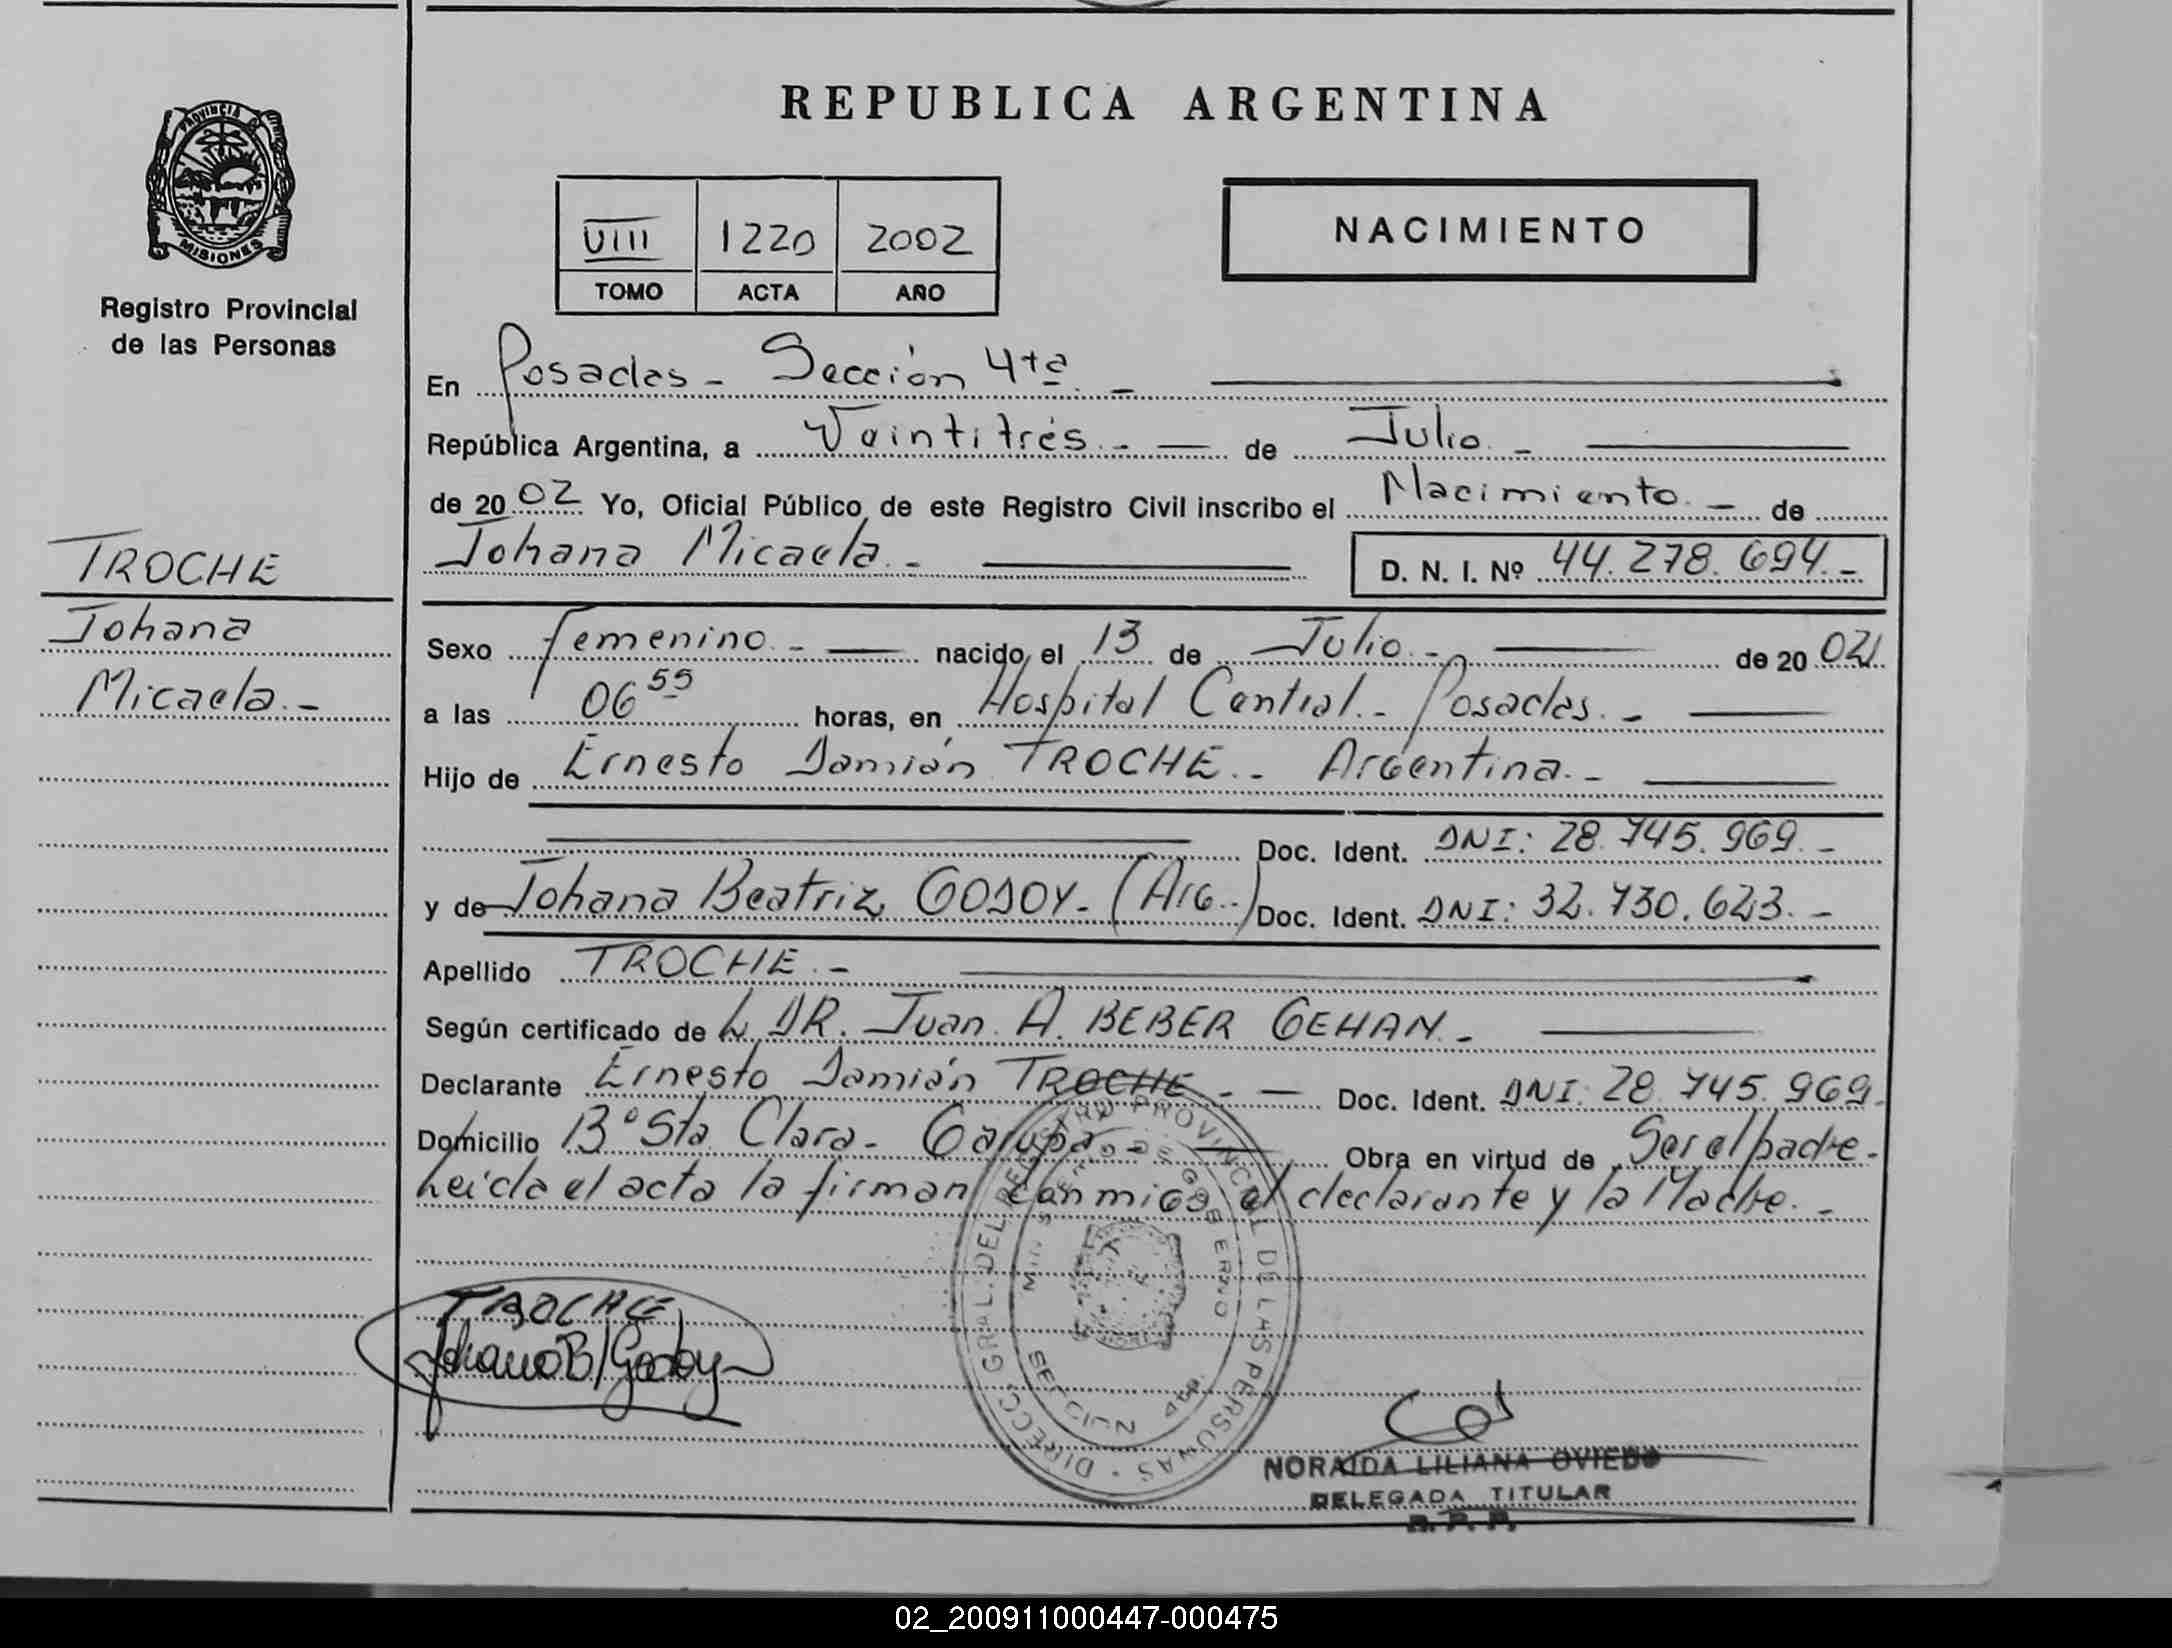 PROVINCIA DE
MISIONES
Registro Provincial
de las Personas
TROCHE
Johana
Micaela.-
REPUBLICA ARGENTINA
VIII 1220 2002
TOMO ACTA AÑO
NACIMIENTO
En Posadas - Sección 4ta. -
República Argentina, a Veintitrés.- de Julio. -
de 20 02 Yo, Oficial Público de este Registro Civil inscribo el Nacimiento. - de
Johana Micaela. - D. N. I. Nº 44.278.694.-
Sexo femenino. - nacido el 13 de Julio.- de 20 02
a las 06 55 horas, en Hospital Central.- Posadas. -
Hijo de Ernesto Damián TROCHE.- Argentina.-
Doc. Ident. DNI: 28.745.969.-
y de Johana Beatriz GODOY.- (Arg.-) Doc. Ident. DNI: 32.730.623.-
Apellido TROCHE.-
Según certificado de L. DR. Juan A. BEBER GEHAN.-
Declarante Ernesto Damián TROCHE.- Doc. Ident. DNI: 28.745.969.
Domicilio Bº Sta Clara- Garupá.- Obra en virtud de Ser el padre.-
Leída el acta la firman conmigo el declarante y la Madre.-
TROCHE
Johana B Godoy
DIRECC. GRAL. DEL REGISTRO PROVINCIAL DE LAS PERSONAS
MINISTERIO DE GOBIERNO
SECCION 4ta
NORAIDA LILIANA OVIEDO
DELEGADA TITULAR
R. P. P.
02_200911000447-000475